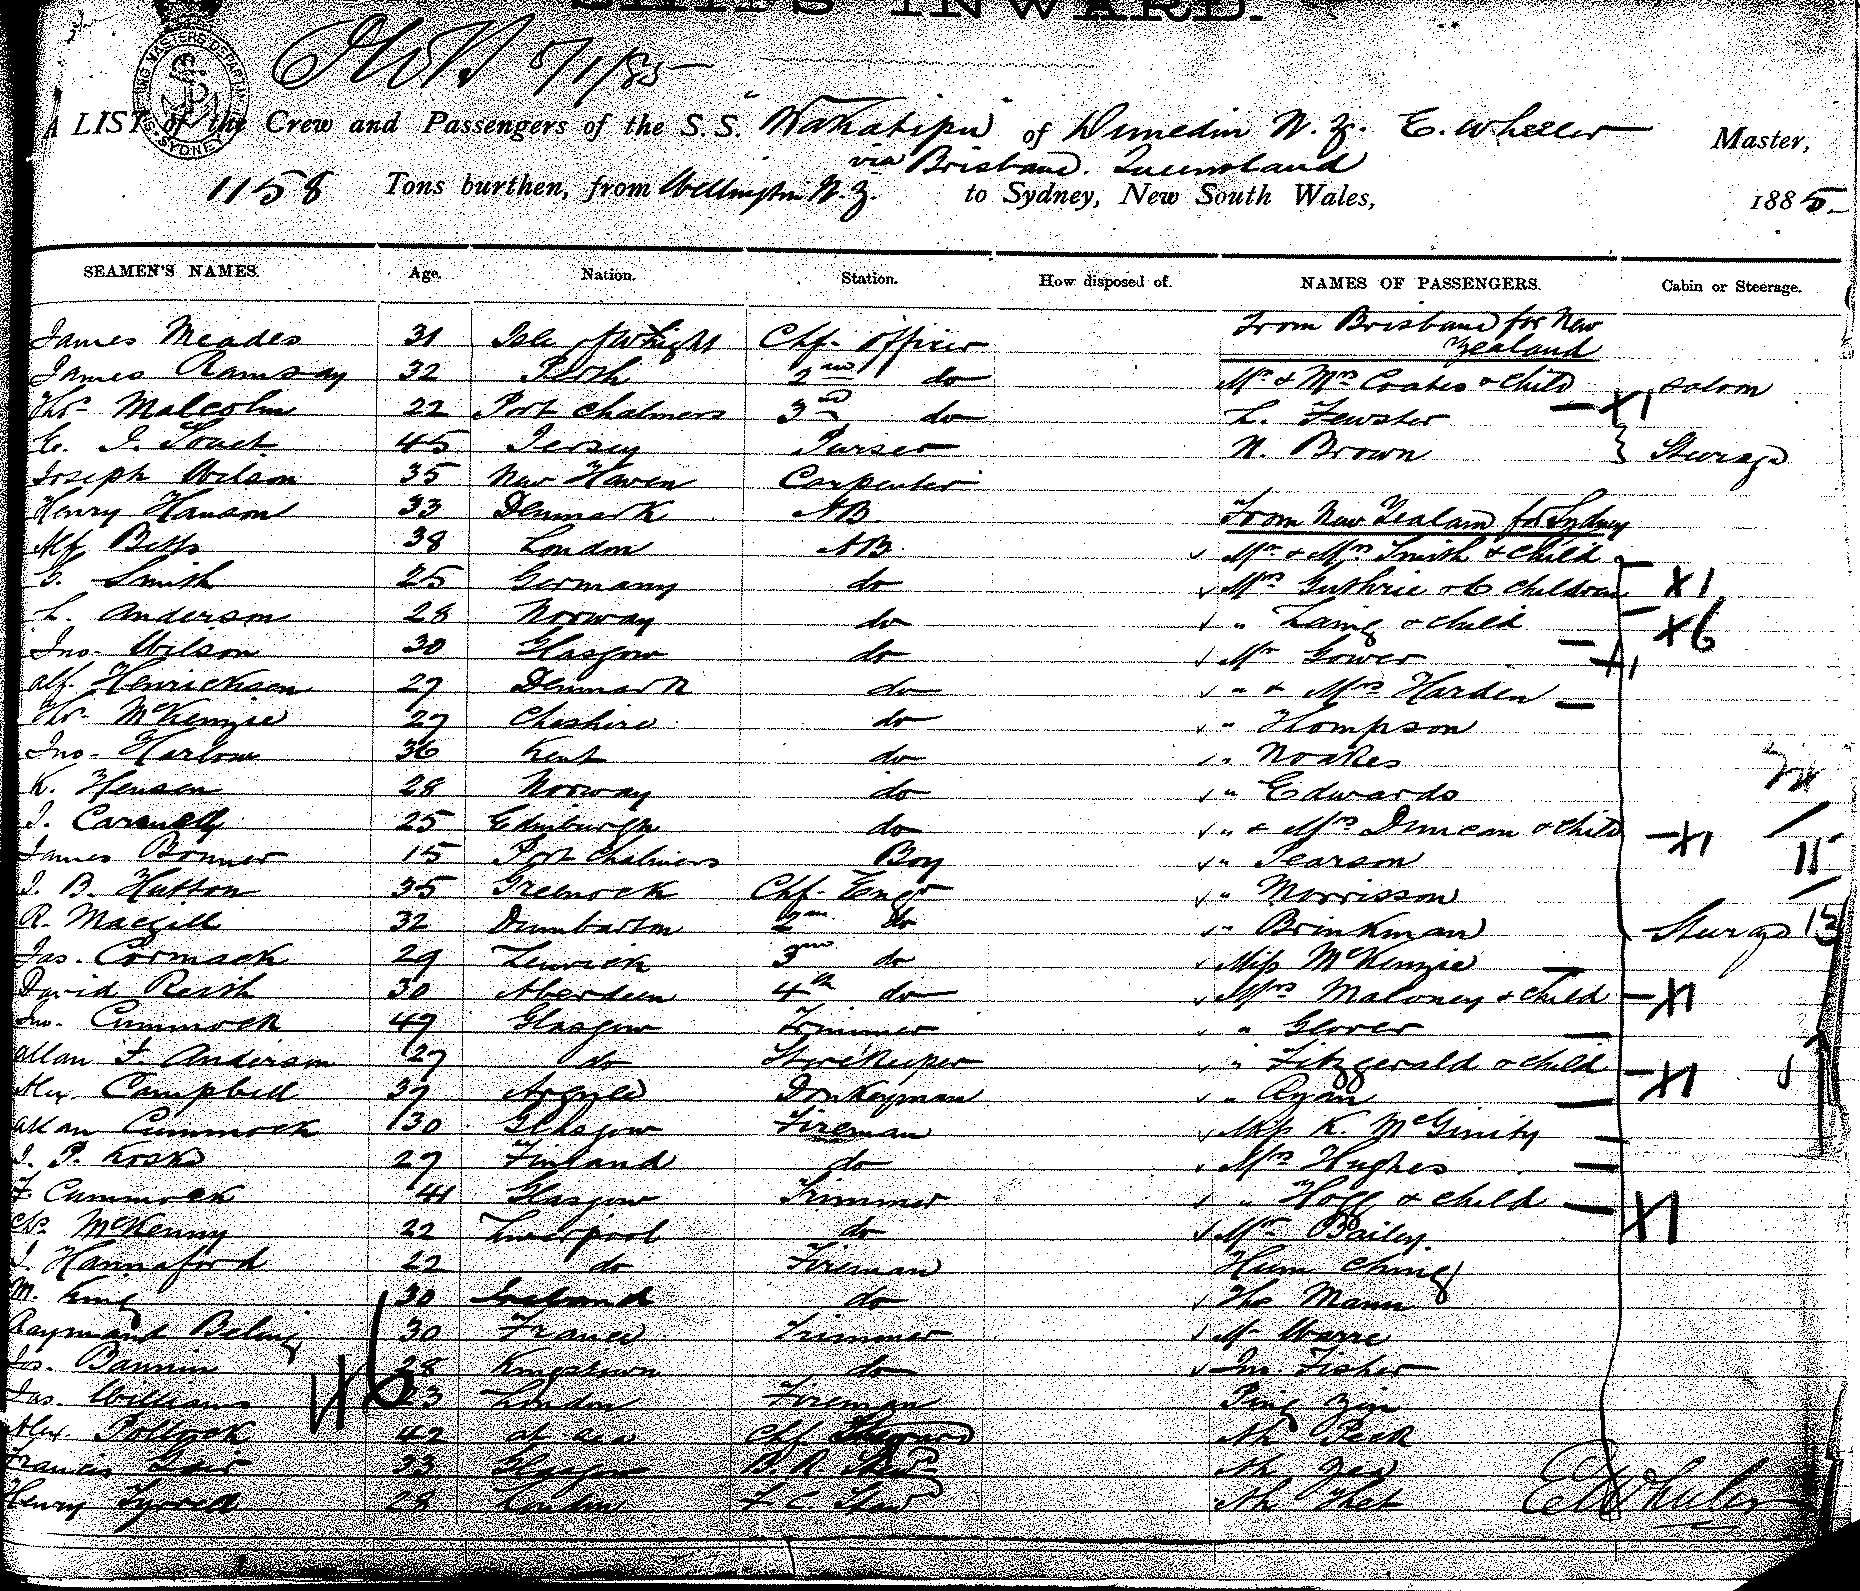 SHIPS INWARD.
5/1/85
A LIST of the Crew and Passengers of the S.S. "Wakatipu" of Dunedin N.Z. E. Wheeler Master,
via Brisbane. Queensland
1158 Tons burthen, from Wellington N.Z. to Sydney, New South Wales, 1885.
SEAMEN'S NAMES. Age. Nation. Station. How disposed of. NAMES OF PASSENGERS. Cabin or Steerage.
From Brisbane for New
James Meades 31 Isle of Wight Chf. Officer Zealand
James Ramsay 32 Perth 2nd do Mr & Mrs Coates & Child Saloon
Thos Malcolm 22 Port Chalmers 3rd do L. Fewster X1
45 Jersey Purser N. Brown Steerage
Joseph Wilson 35 New Haven Carpenter
Henry Hanson 33 Denmark AB. From New Zealand for Sydney
Alf Betts 38 London AB. Mr & Mrs Smith & Child
Smith 25 Germany do Mrs Guthrie & 6 Children X1
L. Anderson 28 Norway do " Laing & Child X6
Jno. Wilson 30 Glasgow do Mr Gower X1
Alf. Henricksen 27 Denmark do " & Mrs Harden
Thos McKenzie 27 Cheshire do " Thompson
Jno. Harlow 36 Kent do " Noakes
K. Hensen 28 Norway do " Edwards
J. 25 Edinburgh do " & Mrs Duncan & Child X1
James Bonner 15 Port Chalmers Boy " Pearson 11
J. B. Hutton 35 Greenock Chf. Engr " Morrisson
R. Macgill 32 Dumbarton 2nd do " Brinkman Steerage 15
Jas. Cormack 29 Lerwick 3rd do Miss McKenzie
David Reith 30 Aberdeen 4th do Mrs Maloney & Child X1
Jno. Cummock 49 Glasgow Trimmer " Glover
Allan F. Anderson 27 do Storekeeper " Fitzgerald & Child X1
Alex. Campbell 37 Argyle Donkeyman " Ryan
Allan Cummock 30 Glasgow Fireman Miss K. McGinity
J. P. Koski 27 Finland do Mrs Hughes
F. Cummock 41 Glasgow Trimmer " Hoff & Child X1
Chs McKenny 22 Liverpool do Mr Bailey
J. Hannaford 22 do Fireman Hum Ching
M. King 30 Ireland do Thos Mann
30 France Trimmer Mr Warre
Jos. Bannin 28 Kingstown do Jno. Fisher
Jas. Williams 23 London Fireman Ping
Alex Pollock 42 at sea Chf Steward Ah Peck
Francis 33 Glasgow Ah
Henry Tyrrell 28 London F. C. Stewd Ah
E Wheeler